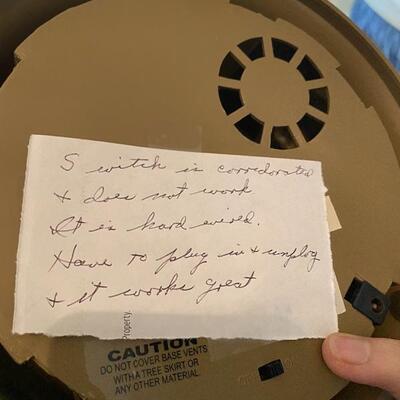 Switch is corredorated
+ does not work
It is hard wired.
Have to plug in + unplug
+ it works great
Property.
CAUTION
DO NOT COVER BASE VENTS
WITH A TREE SKIRT OR
ANY OTHER MATERIAL.